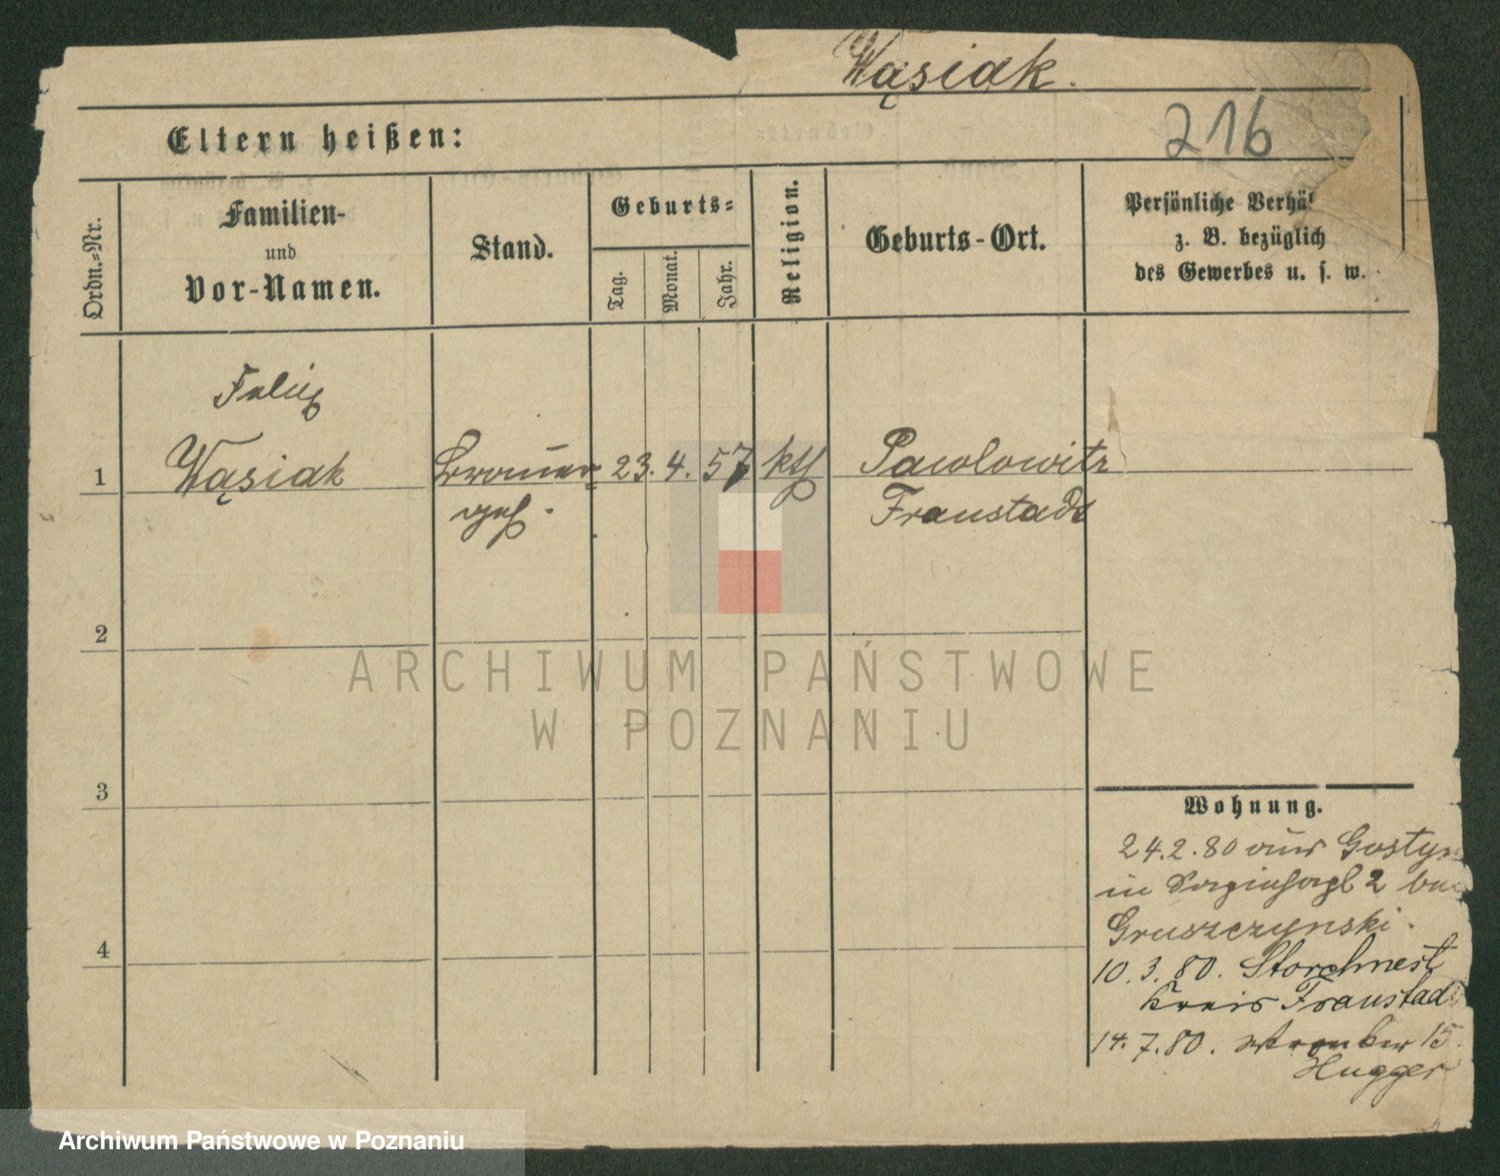 Wąsiak.
216
Eltern heißen:
Ordn.-Nr.
Familien-
und
Vor-Namen.
Stand.
Geburts-
Tag.
Monat.
Jahr.
Religion.
Geburts-Ort.
Persönliche Verhäl
z. B. bezüglich
des Gewerbes u. s. w.
Felix
1 Wąsiak Brauer 23. 4. 57 kth Pawlowitz
geh. Fraustadt
2
3
4
ARCHIWUM PAŃSTWOWE
W POZNANIU
Wohnung.
24.2.80 aus Gostyn
in 2 bei
Gruszczynski.
10. 3. 80. Storchnest
Kreis Fraustadt
14. 7. 80. 15
Hugger
Archiwum Państwowe w Poznaniu